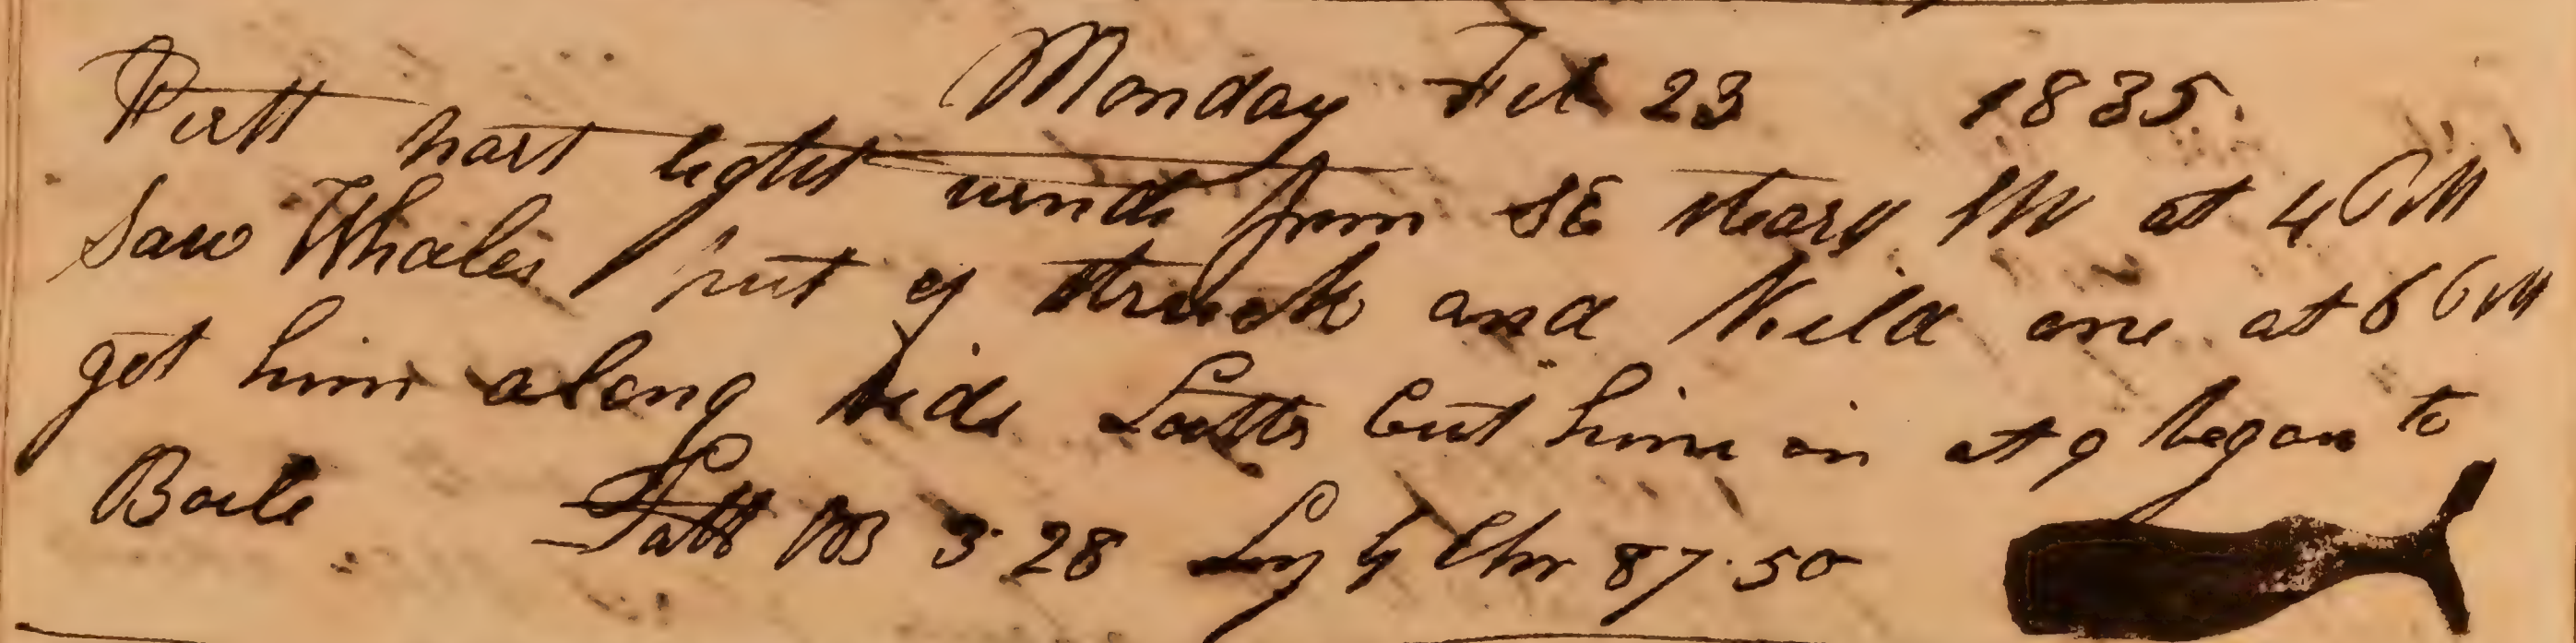 Monday Feb 23 1835
First part light winds from SE steary SW at 4 PM
Saw Whales put of struck and Kild one at 6 PM
got him along side Latter Cut him in at 9 began to
Boile Latt 3 28 Lon by Chr 87.50